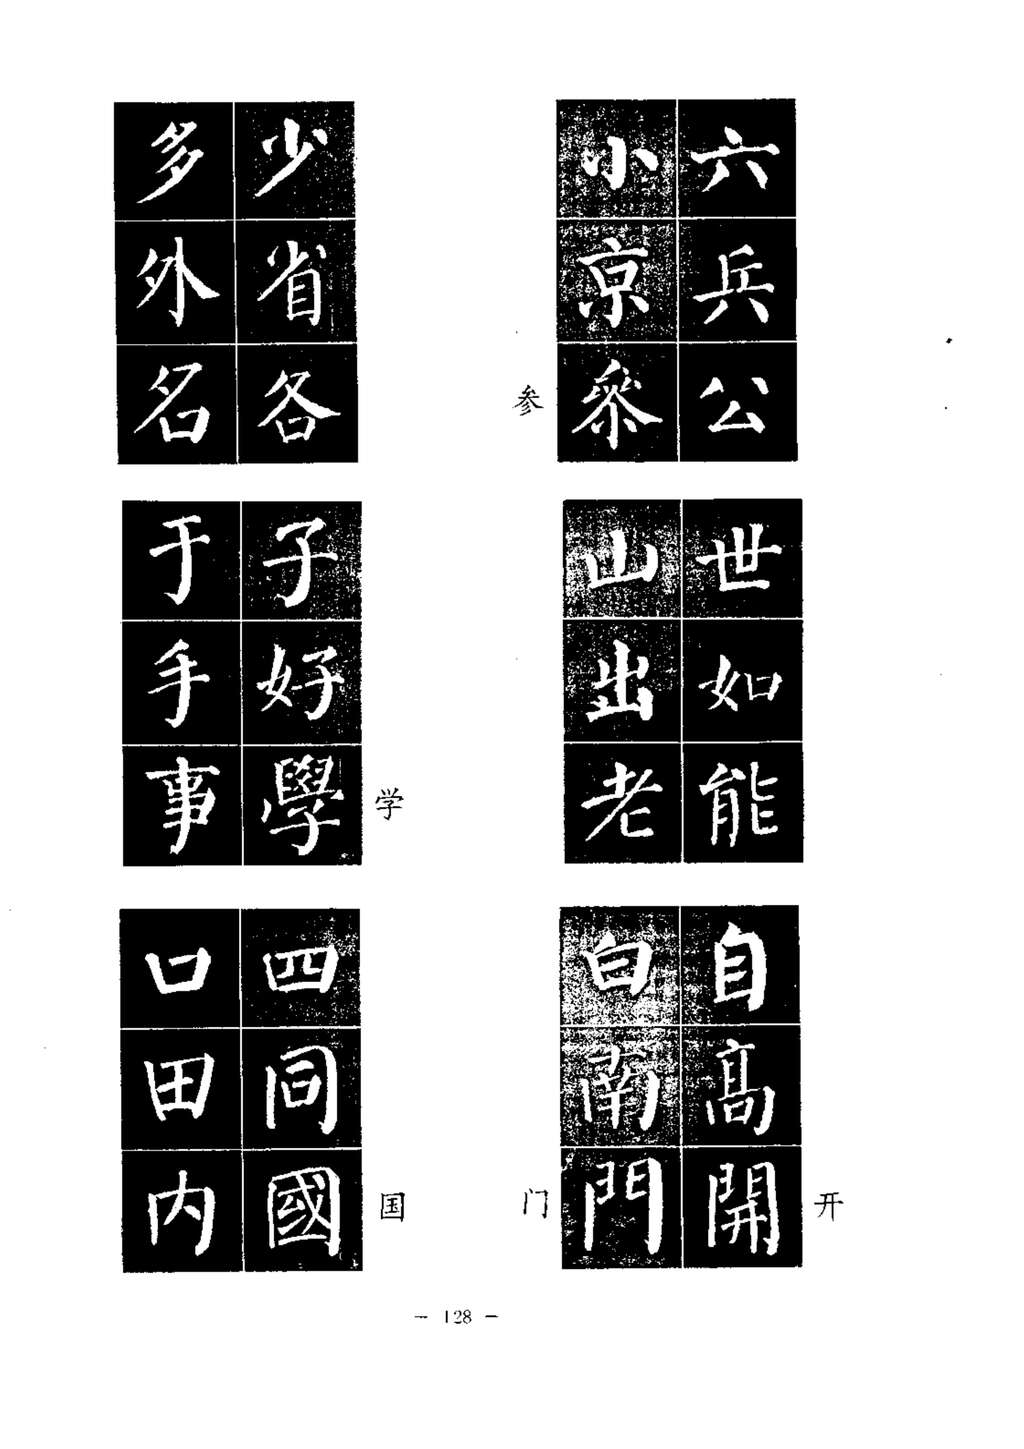 多 少
外 省
名 各
小 六
京 兵
参 參 公
于 子
手 好
事 學 学
山 世
出 如
老 能
口 四
田 同
内 國 国
白 自
南 高
门 門 開 开
- 128 -